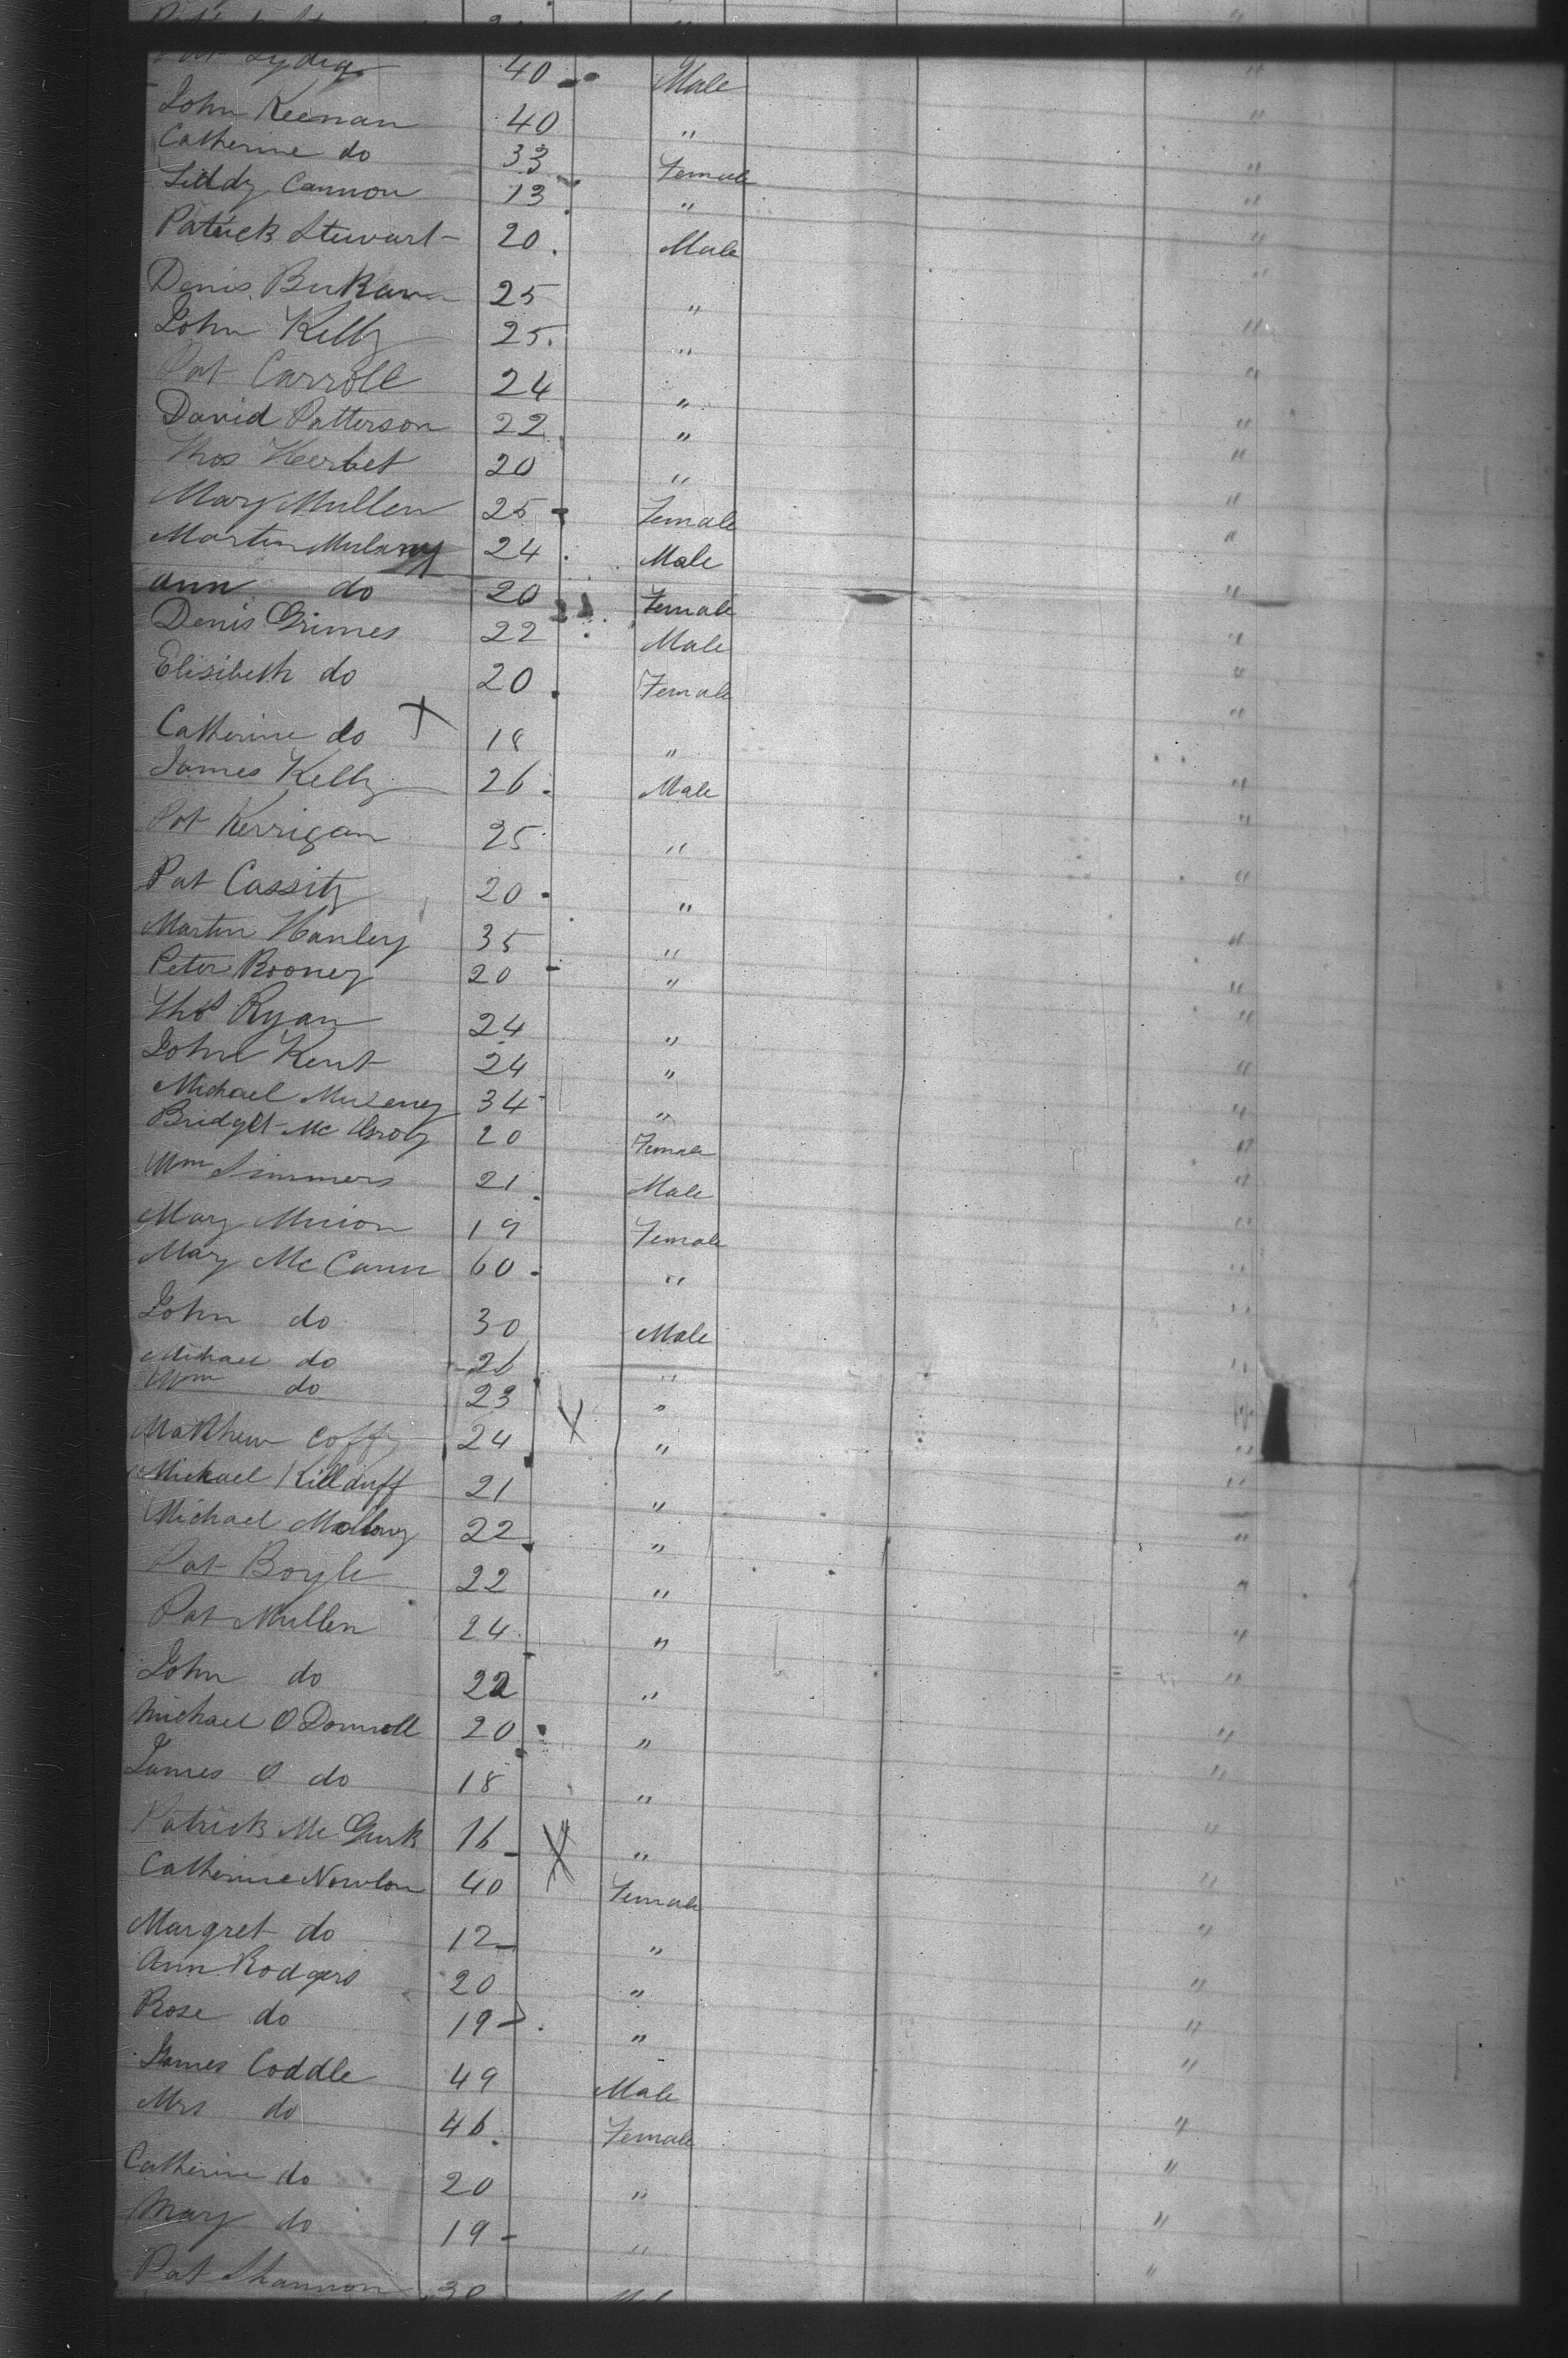 Lydia 40 Male "
John Keenan 40 " "
Catherine do 33 Female "
Liddy Cannon 13 " "
Patrick Stewart 20 Male "
Denis 25 " "
John Kelly 25 " "
Pat Carroll 24 " "
David Patterson 22 " "
Thos Herbet 20 " "
Mary Mullen 25 Female "
Martin 24 Male "
Ann do 20 Female "
Denis Grimes 22 Male "
Elisibeth do 20 Female "
Catherine do X 18 " "
James Kelly 26 Male "
Pat Kerrigan 25 " "
Pat Cassity 20 " "
Martin Hanley 35 " "
Peter Rooney 20 " "
Thos Ryan 24 " "
John Kent 24 " "
Michael 34 " "
Bridget Mc 20 Female "
Wm Simmers 21 Male "
Mary 19 Female "
Mary Mc Cann 60 " "
John do 30 Male "
Michael do 26 " "
Wm do 23 " "
Matthew Coffy 24 X " "
Michael Killduff 21 " "
Michael Mollowy 22 " "
Pat Boyle 22 " "
Pat Mullen 24 " "
John do 22 " "
Michael O Donnell 20 " "
James O do 18 " "
Patrick Mc Gurk 16 X " "
Catherine Nowlon 40 Female "
Margret do 12 " "
Ann Rodgers 20 " "
Rose do 19 " "
James Coddle 49 Male "
Mrs do 46 Female "
Catherine do 20 " "
Mary do 19 " "
Pat Shannon 30 "